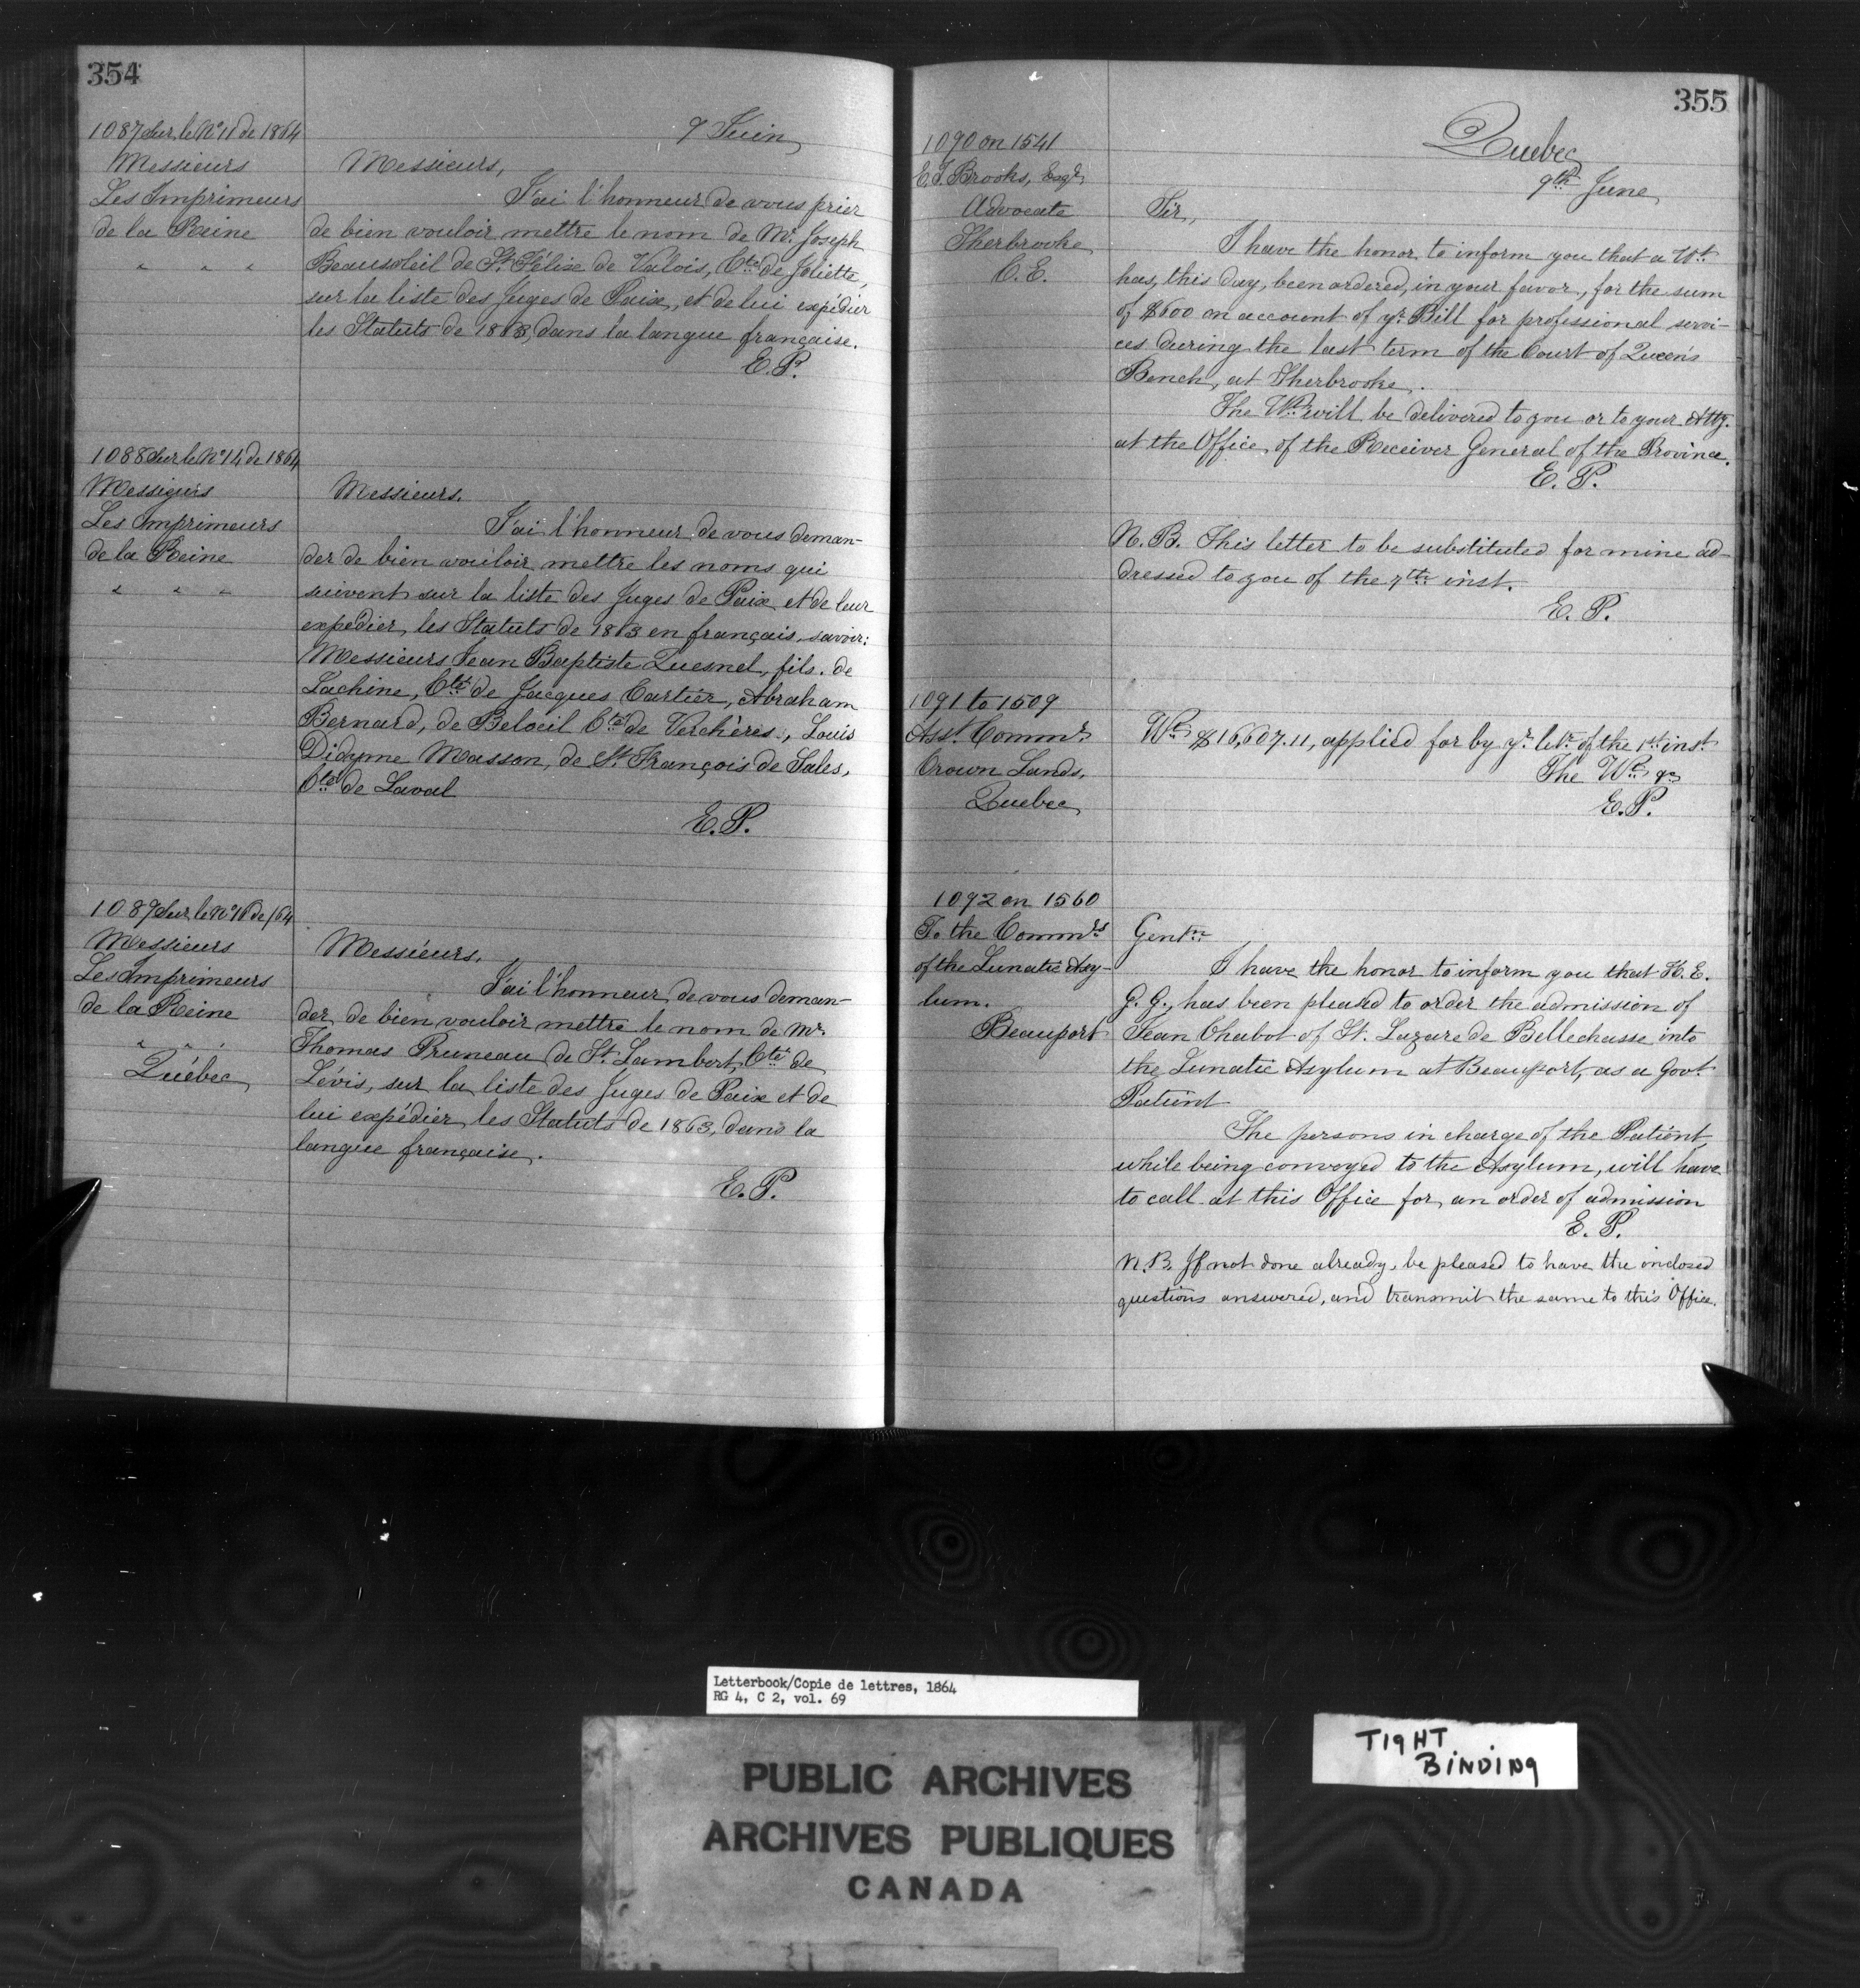 354
9 Juin
1087 Sur le No 11 de 1864
Messieurs
Les Imprimeurs
de la Reine
" " "
Messieurs,
J'ai l'honneur de vous prier
de bien vouloir mettre le nom de Mr. Joseph
Beausoleil de St. Félix de Valois, Cté de Joliette,
sur la liste des Juges de Paix, et de lui expédier
les Statuts de 1863, dans la langue française.
E.P.
1088 Sur le No 14 de 1864
Messieurs
Les Imprimeurs
de la Reine
" " "
Messieurs.
J'ai l'honneur de vous deman-
der de bien vouloir mettre les noms qui
suivent sur la liste des Juges de Paix et de leur
expédier les Statuts de 1863 en français, savoir:
Messieurs Jean Baptiste Quesnel, fils. de
Lachine, Cté de Jacques Cartier, Abraham
Bernard, de Beloeil Cté de Verchères, Louis
Didyme Masson, de St. François de Sales,
Cté de Laval
E.P.
1089 Sur le No de /64
Messieurs
Les Imprimeurs
de la Reine
" " "
Québec
Messieurs.
J'ai l'honneur de vous deman-
der de bien vouloir mettre le nom de Mr.
Thomas Pruneau de St. Lambert, Cté de
Lévis, sur la liste des Juges de Paix et de
lui expédier les Statuts de 1863, dans la
langue française.
E.P.
355
Quebec
9th June
1090 on 1541
E.T. Brooks, Esqr.
Advocate
Sherbrooke
C.E.
Sir,
I have the honor to inform you that a Wt.
has, this day, been ordered, in your favor, for the sum
of $600 on account of yr. Bill for professional servi-
ces during the last term of the Court of Queen's
Bench, at Sherbrooke.
The Wt. will be delivered to you or to your Atty.
at the Office of the Receiver General of the Province.
E.P.
N.B. This letter to be substituted for mine ad-
dressed to you of the 7th inst.
E.P.
1091 to 1509
Asst. Commr.
Crown Lands.
Quebec
Wt. $16,607.11, applied for by yr. letr. of the 1st inst.
The Wt. &c
E.P.
1092 on 1560
To the Commrs
of the Lunatic Asy-
lum.
Beauport
Gentn.
I have the honor to inform you that H.E.
G.G., has been pleased to order the admission of
Jean Chabot of St. Lazare de Bellechasse into
the Lunatic Asylum at Beauport, as a Govt.
Patient
The persons in charge of the Patient,
while being conveyed to the Asylum, will have
to call at this Office for an order of admission
E.P.
N.B. If not done already, be pleased to have the inclosed
questions answered, and transmit the same to this Office.
Letterbook/Copie de lettres, 1864
RG 4, C 2, vol. 69
TIGHT
BINDING
PUBLIC ARCHIVES
ARCHIVES PUBLIQUES
CANADA